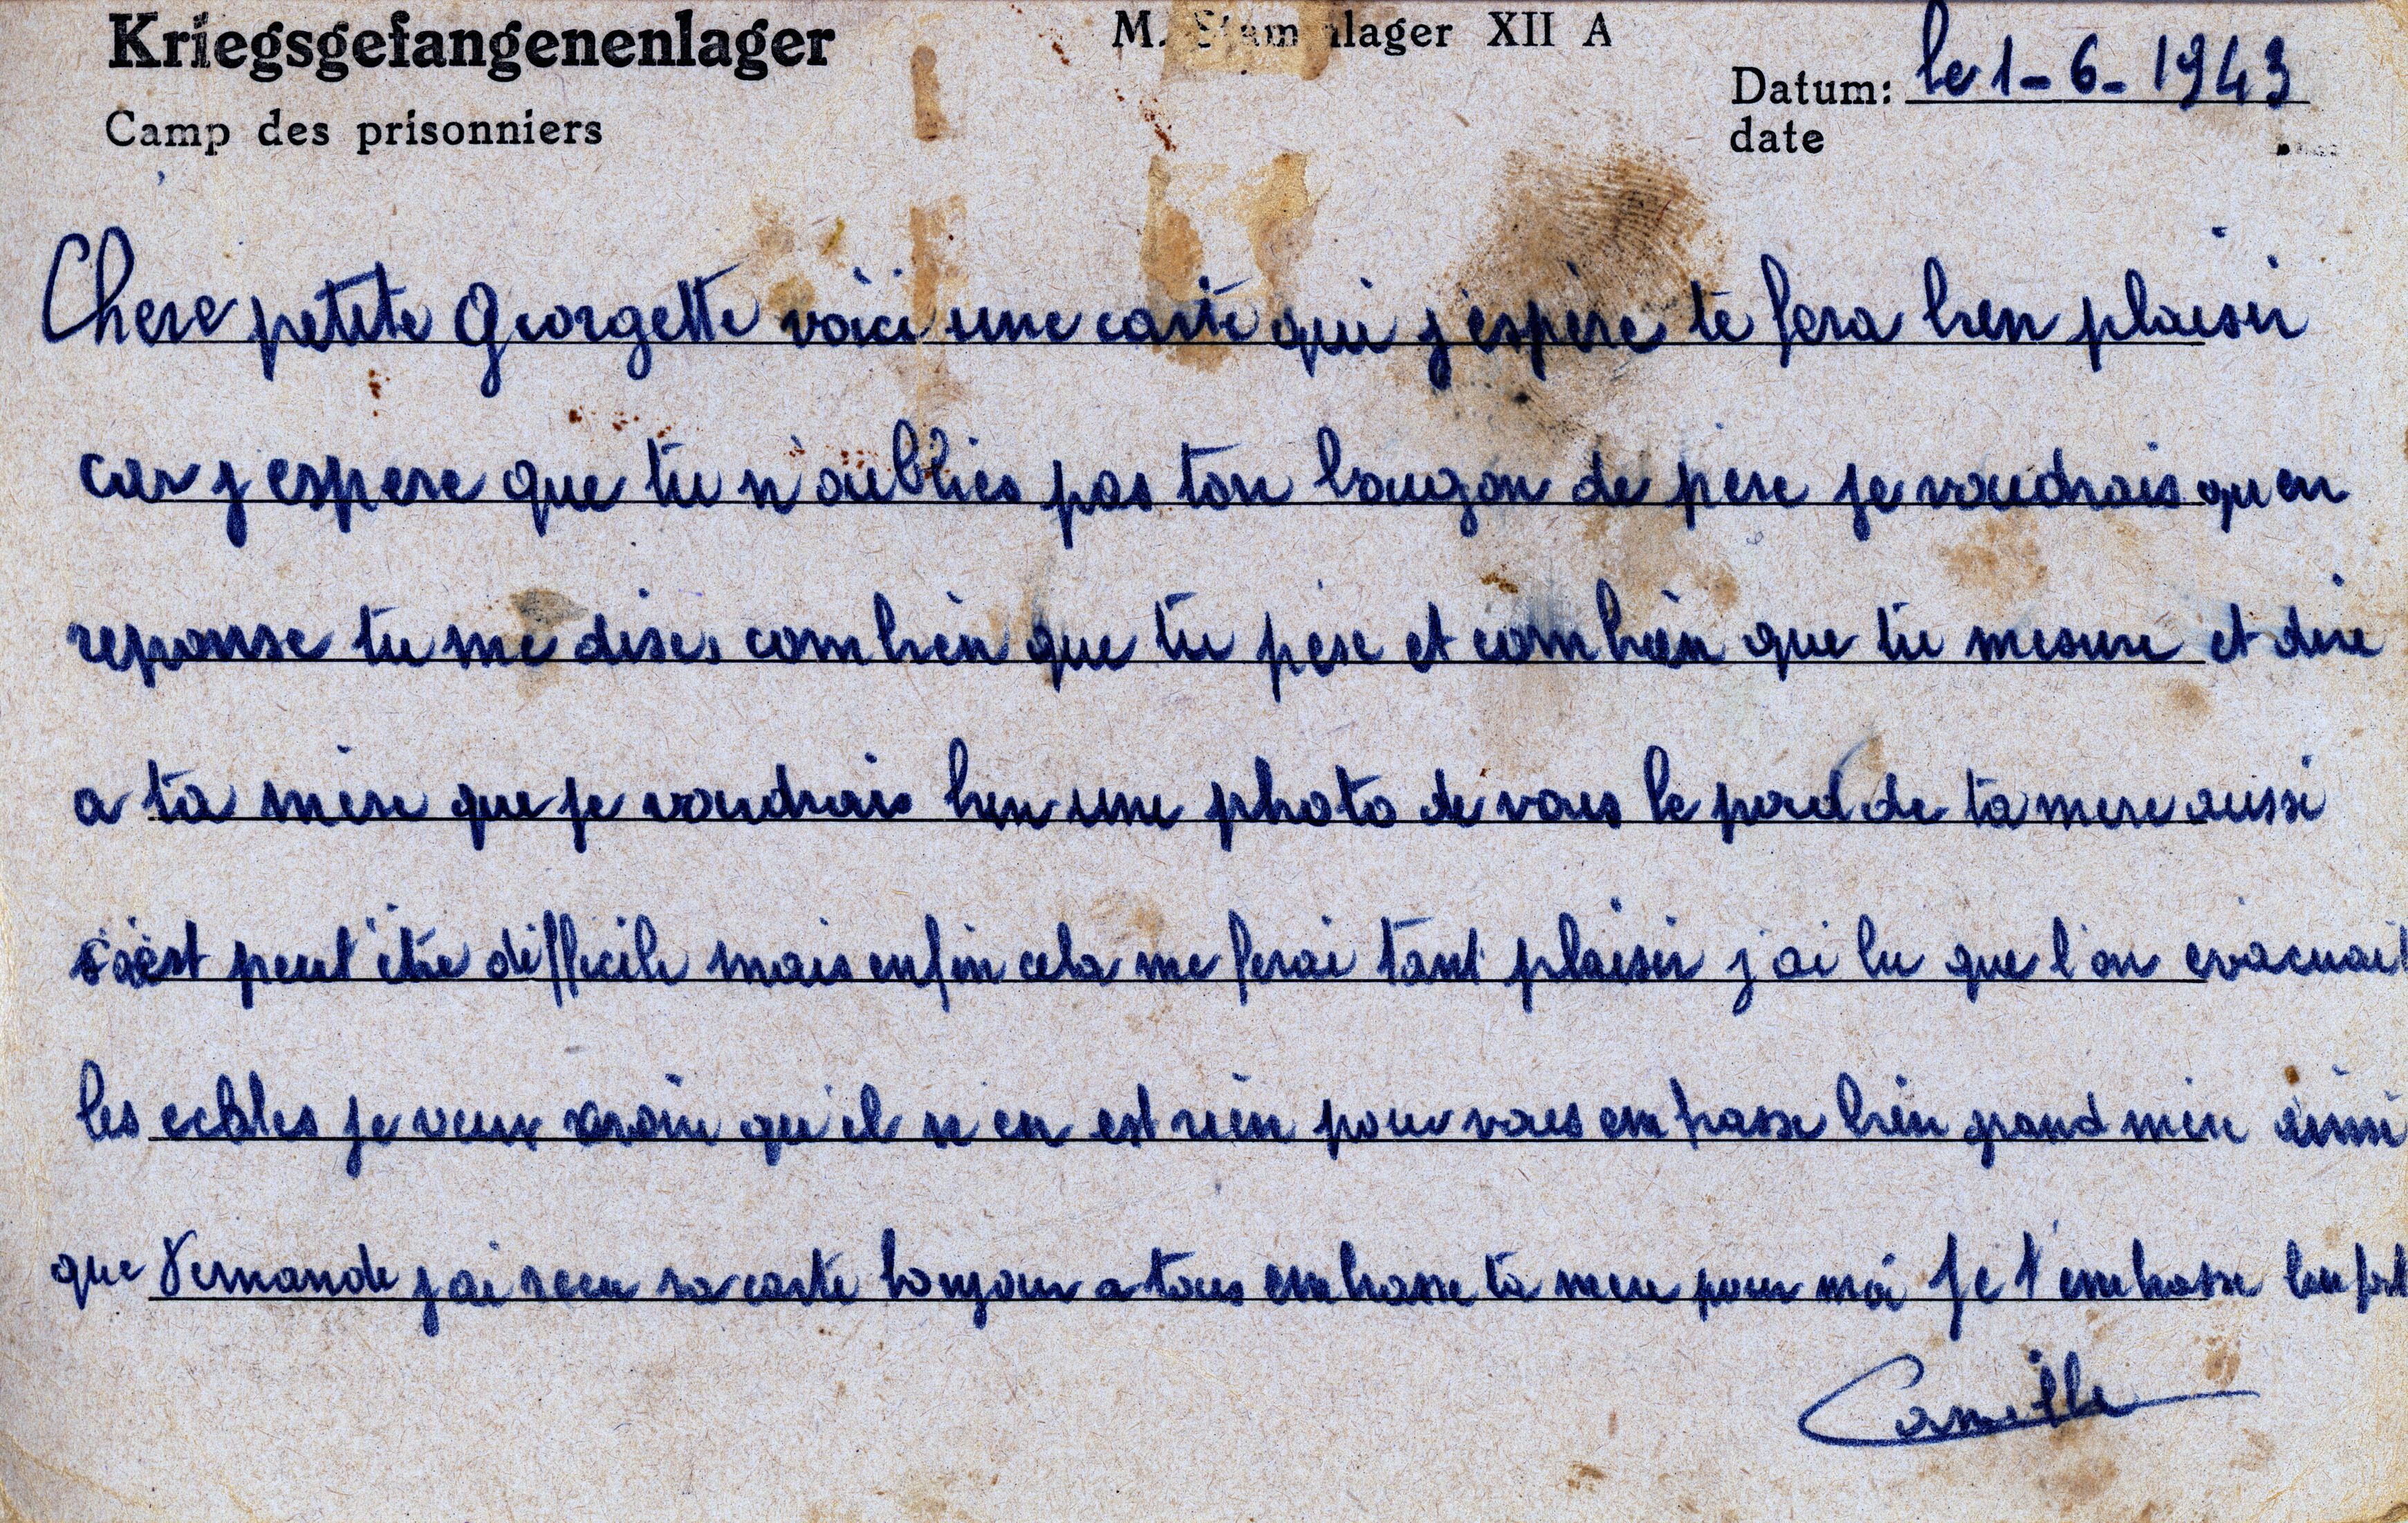 Kriegsgefangenenlager
M. Stammlager XII A
Camp des prisonniers
Datum: le 1-6-1943
date
Chere petite Georgette voici une carte qui j'espère te fera bien plaisir
car j espere que tu n'oublies pas ton bougon de pere je voudrais qu en
reponse tu me dises combien que tu pèse et combien que tu mesure et dire
a ta mère que je voudrais bien une photo de vous le poid de ta mere aussi
s'est peut'être difficile mais enfin cela me ferai tant plaisir j'ai lu que l'on evacuait
les ecoles je veux croire qu'il n en est rien pour vous embrasse bien grand mère ainsi
que Fernande j'ai recu sa carte bonjour a tous embrasse ta mere pour moi Je t'embrasse bien fort
Camille